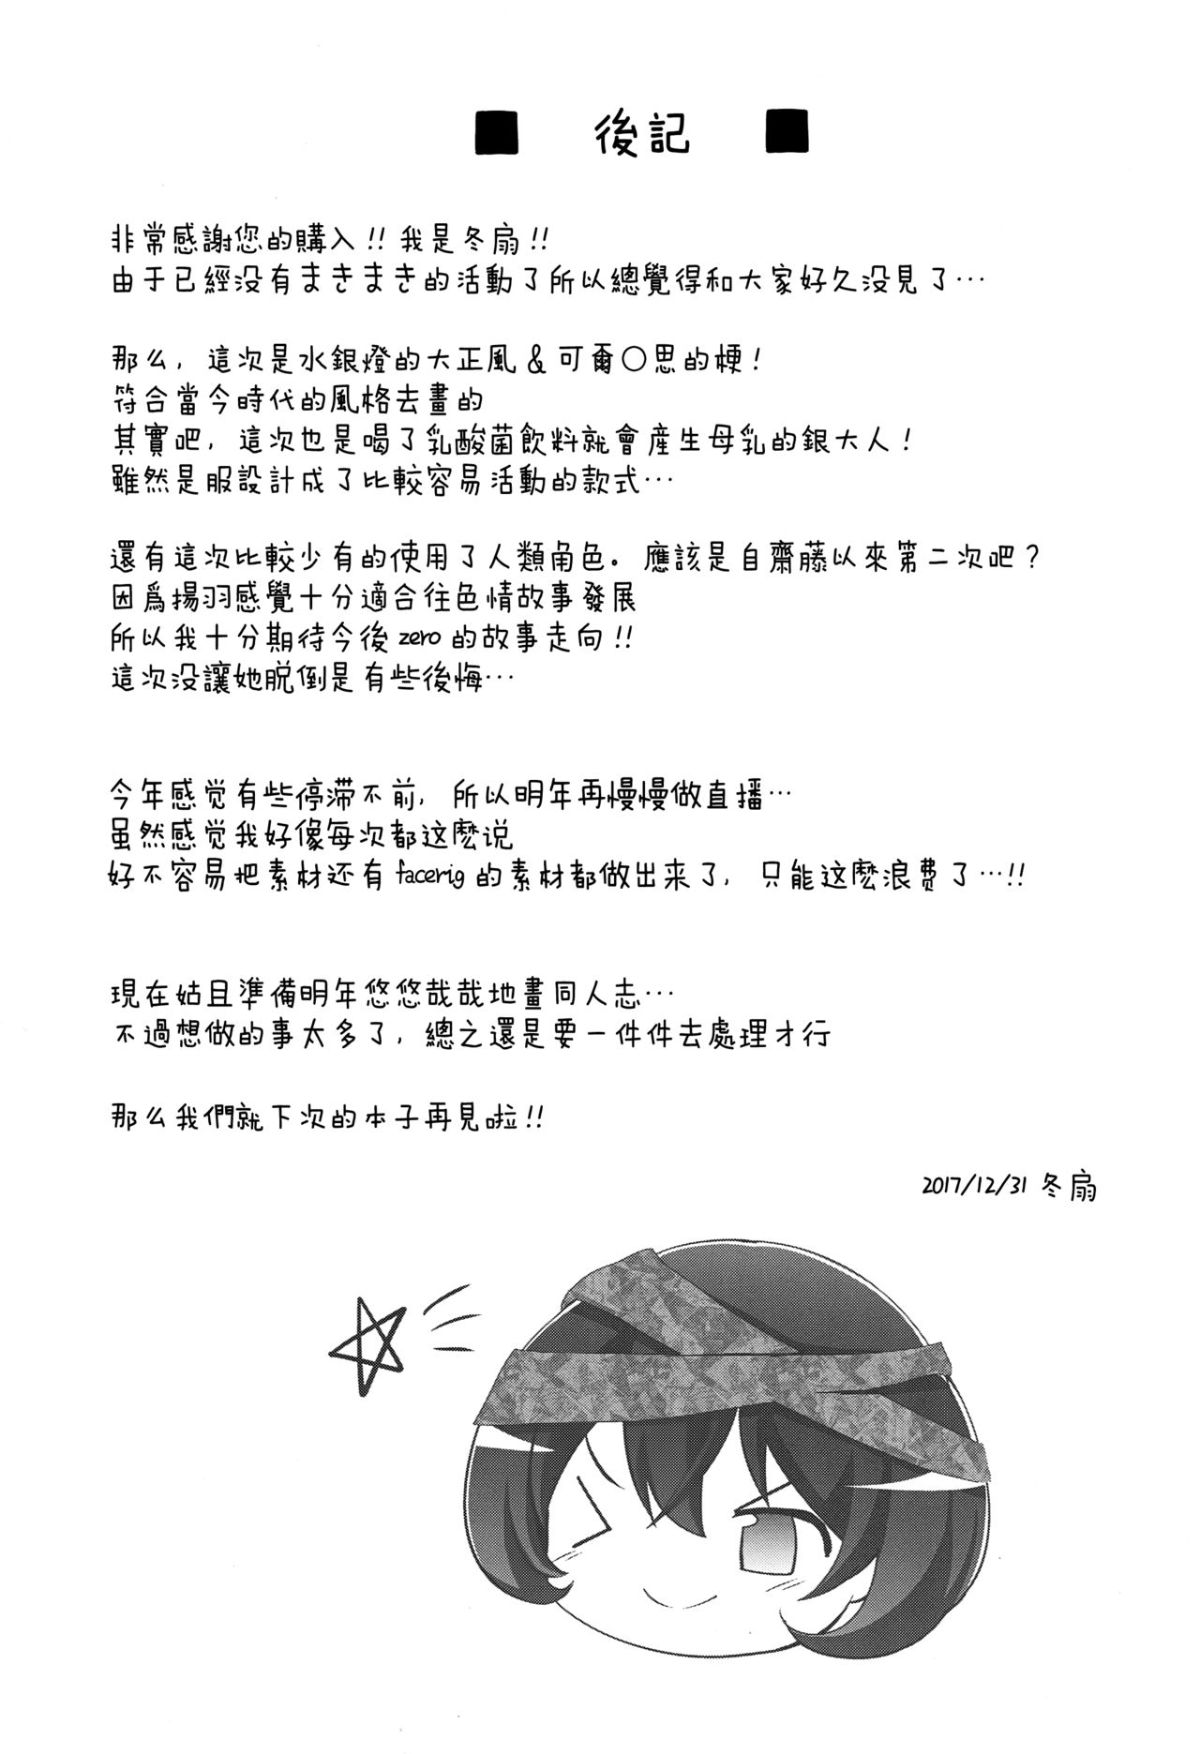 ■ 後記 ■
非常感謝您的購入!! 我是冬扇!!
由于已經没有まきまき的活動了所以總覺得和大家好久没見了…
那么, 這次是水銀燈的大正風&可爾〇思的梗!
符合當今時代的風格去畫的
其實吧, 這次也是喝了乳酸菌飲料就會産生母乳的銀大人!
雖然是服設計成了比較容易活動的款式…
還有這次比較少有的使用了人類角色。應該是自齋藤以來第二次吧?
因爲揚羽感覺十分適合往色情故事發展
所以我十分期待今後zero的故事走向!!
這次没讓她脱倒是有些後悔…
今年感觉有些停滞不前, 所以明年再慢慢做直播…
虽然感觉我好像每次都这麽说
好不容易把素材还有facerig的素材都做出来了, 只能这麽浪费了…!!
現在姑且準備明年悠悠哉哉地畫同人志…
不過想做的事太多了, 總之還是要一件件去處理才行
那么我們就下次的本子再見啦!!
2017/12/31 冬扇